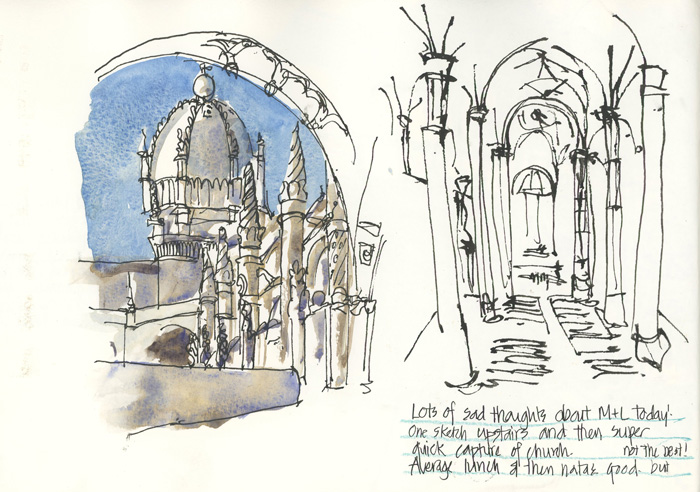 Lots of sad thoughts about M+L today.
One sketch upstairs and then super
quick capture of church.
Average lunch & then natas good but
not the best!